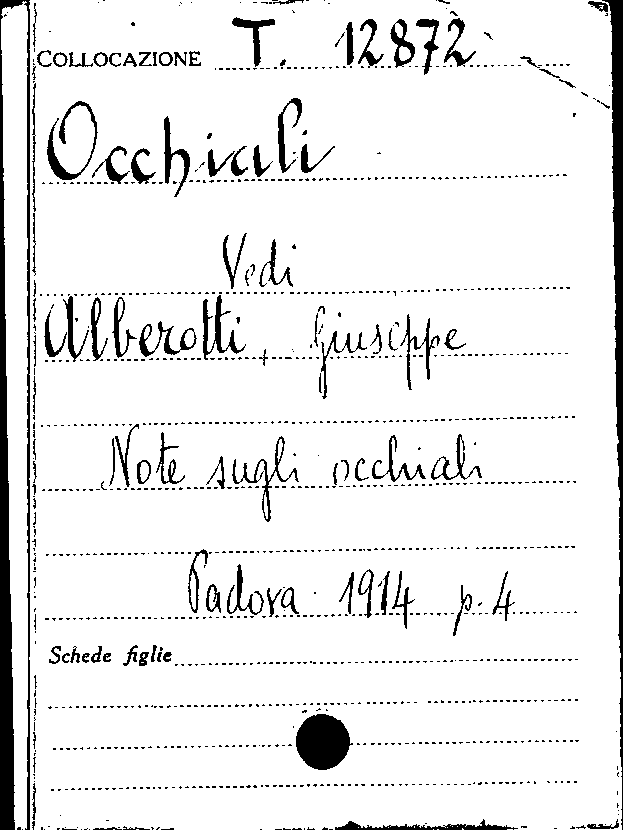 COLLOCAZIONE T. 12872
Occhiali
Vedi
Alberotti, Giuseppe
Note sugli occhiali
Padova 1914 p. 4
Schede figlie